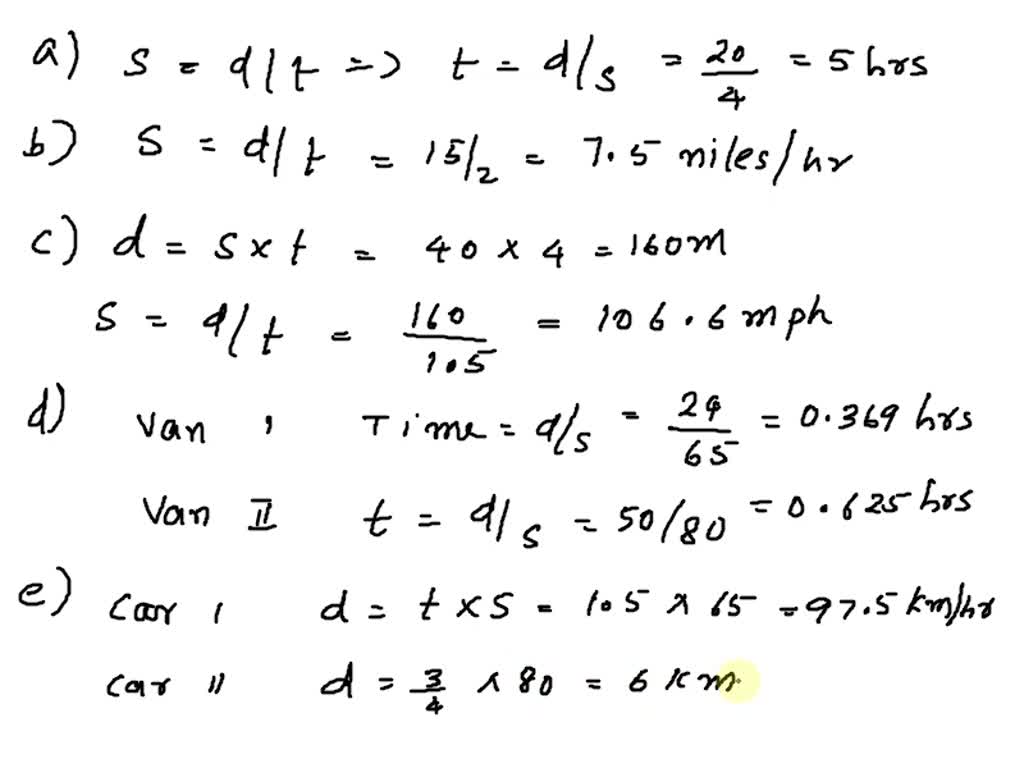 a) s = d/t => t = d/s = 20/4 = 5 hrs
b) S = d/t = 15/2 = 7.5 niles/hr
c) d = s x t = 40 x 4 = 160m
s = d/t = 160/1.5 = 106.6 mph
d) Van ı Time = d/s = 24/65 = 0.369 hrs
Van II t = d/s = 50/80 = 0.625 hrs
e) Car ı d = t x S = 1.5 x 65 = 97.5 km/hr
car ıı d = 3/4 x 80 = 6 Km